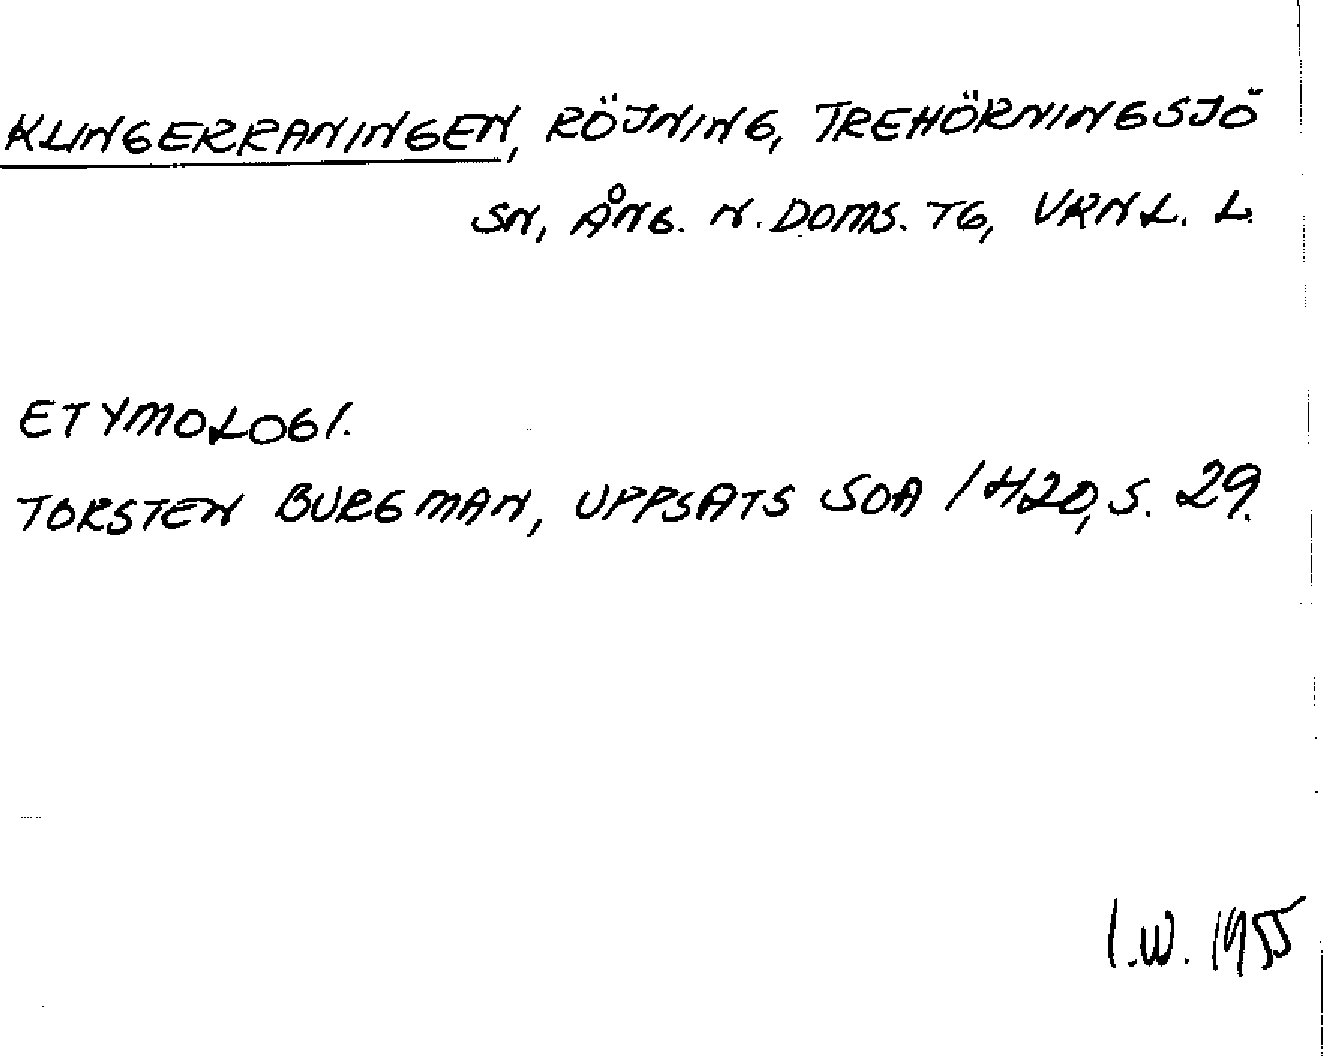 KLINGERRANINGEN, RÖJNING, TREHÖRNINGSJÖ
SN, ÅNG. N. DOMS. TG, VRNL. L.
ETYMOLOGI.
TORSTEN BURGMAN, UPPSATS SOA 1420, S. 29.
I.W. 1955